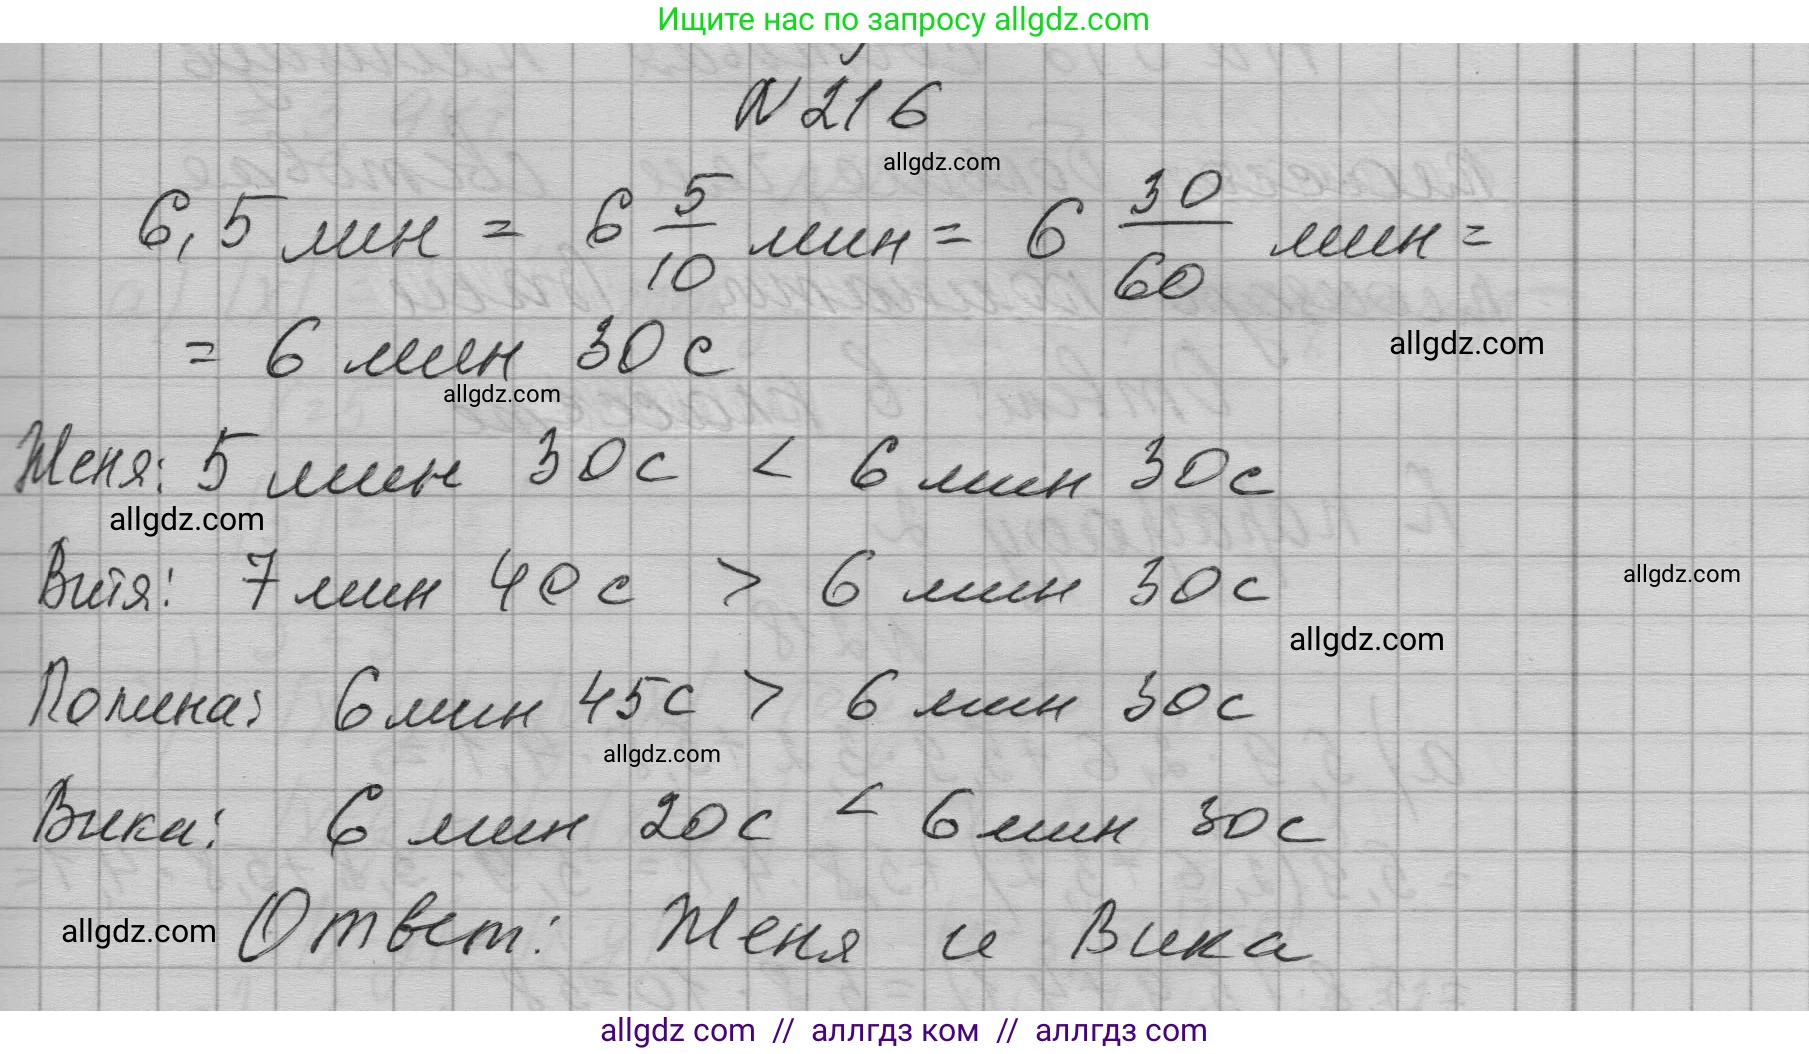 Ищите нас по запросу allgdz.com
№216
allgdz.com
6,5 мин = 6 5/10 мин = 6 30/60 мин =
= 6 мин 30 с
allgdz.com
allgdz.com
Женя: 5 мин 30с < 6 мин 30с
allgdz.com
Витя: 7 мин 40с > 6 мин 30с
allgdz.com
allgdz.com
Полина: 6 мин 45с > 6 мин 30с
allgdz.com
Вика: 6 мин 20с < 6 мин 30с
allgdz.com Ответ: Женя и Вика
allgdz com // аллгдз ком // аллгдз com